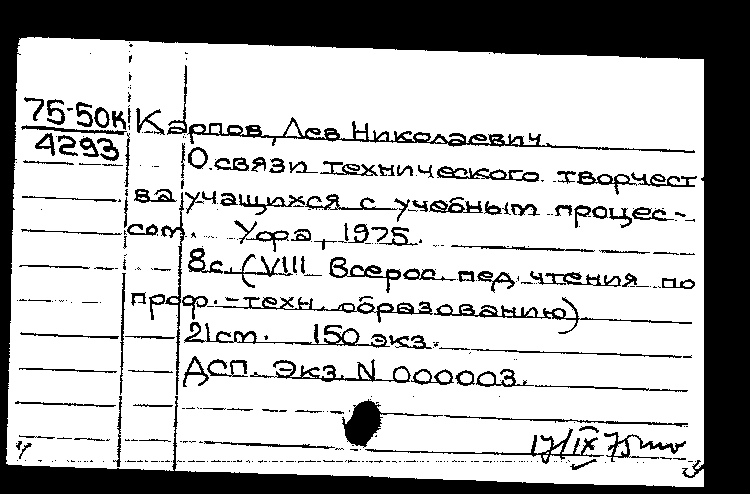 75-50к
4293
Карпов, Лев Николаевич.
О связи технического творчест-
ва учащихся с учебным процес-
сом. Уфа, 1975.
8с. (VIII Всерос. пед. чтения по
проф.-техн. образованию)
21см. 150 экз.
ДСП. Экз. N 000003.
17/IX 75